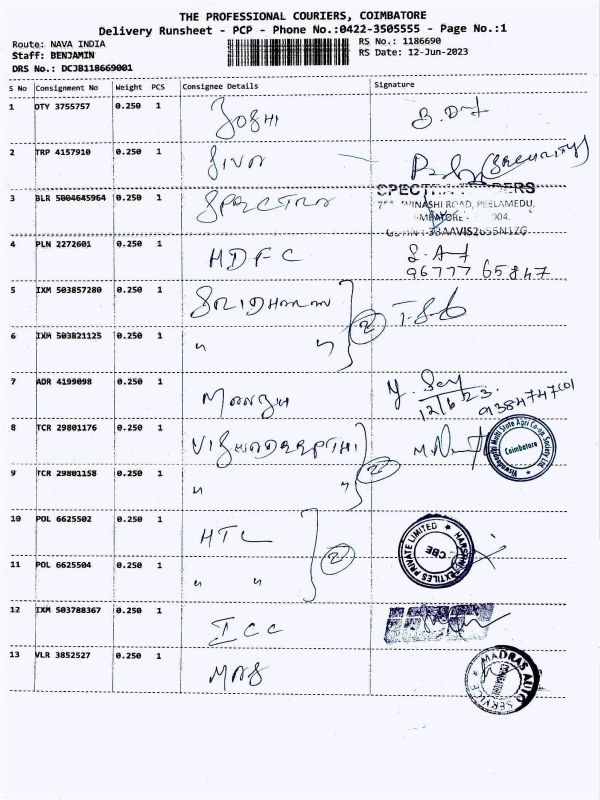 THE PROFESSIONAL COURIERS, COIMBATORE
Delivery Runsheet - PCP - Phone No.:0422-3505555 - Page No.:1
Route: NAVA INDIA
Staff: BENJAMIN
DRS No.: DCJB118669001
RS No.: 1186690
RS Date: 12-Jun-2023
S No Consignment No Weight PCS Consignee Details Signature
1 OTY 3755757 0.250 1 JOSHI
2 TRP 4157910 0.250 1 SIVA (Security)
3 BLR 5004645964 0.250 1 SPECTRA
AVINASHI ROAD, PEELAMEDU,
4 PLN 2272601 0.250 1 HDFC
96777 65847
5 IXM 503857280 0.250 1 SRIDHARAN 2
6 IXM 503821125 0.250 1 " "
7 ADR 4199098 0.250 1 MANJU
12/6/23
8 TCR 29801176 0.250 1 2
Coimbatore
9 TCR 29801158 0.250 1 " "
10 POL 6625502 0.250 1 HTL 2
PRIVATE LIMITED
CBE
11 POL 6625504 0.250 1 " "
12 IXM 503788367 0.250 1 ICC
13 VLR 3852527 0.250 1 MAS
MADRAS AUTO SERVICE